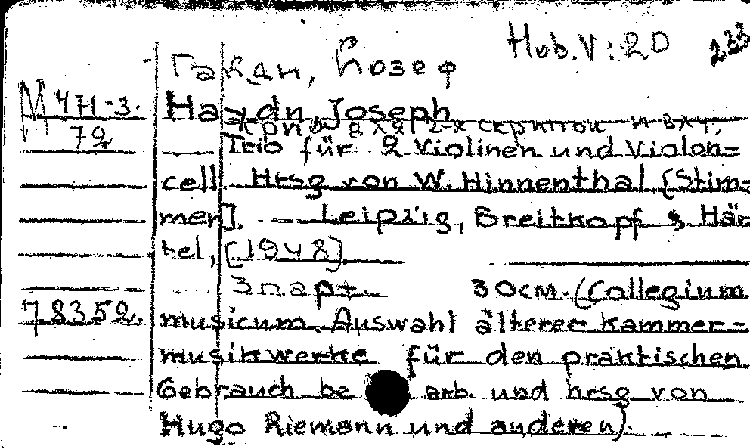 Hob.V:20
Гайдн, Йозеф
М 471-3. Haydn, Joseph
72 Трио для 2-х скрипок и влч.
Trio für 2 Violinen und Violon=
cell. Hrsg von W. Hinnenthal [Stim-
men]. — Leipzig, Breitkopf & Här
tel, [1948]
3 парт. 30см. (Collegium
78352. musicum. Auswahl älterer Kammer-
musikwerke für den praktischen
Gebrauch bearb. und hrsg von
Hugo Riemann und anderen).